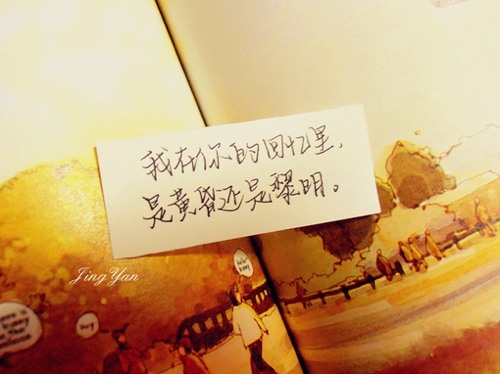 我在你的回忆里，
是黄昏还是黎明。
JingYan